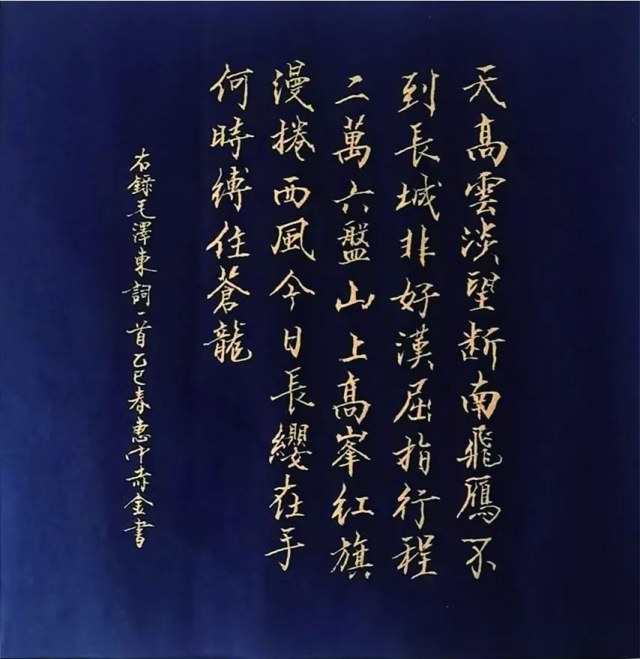 天高雲淡望断南飛鴈不
到長城非好漢屈指行程
二萬六盤山上髙峯紅旗
漫捲西風今日長纓在手
何時縛住蒼龍
右錄毛澤東詞一首乙巳春惠中赤金書